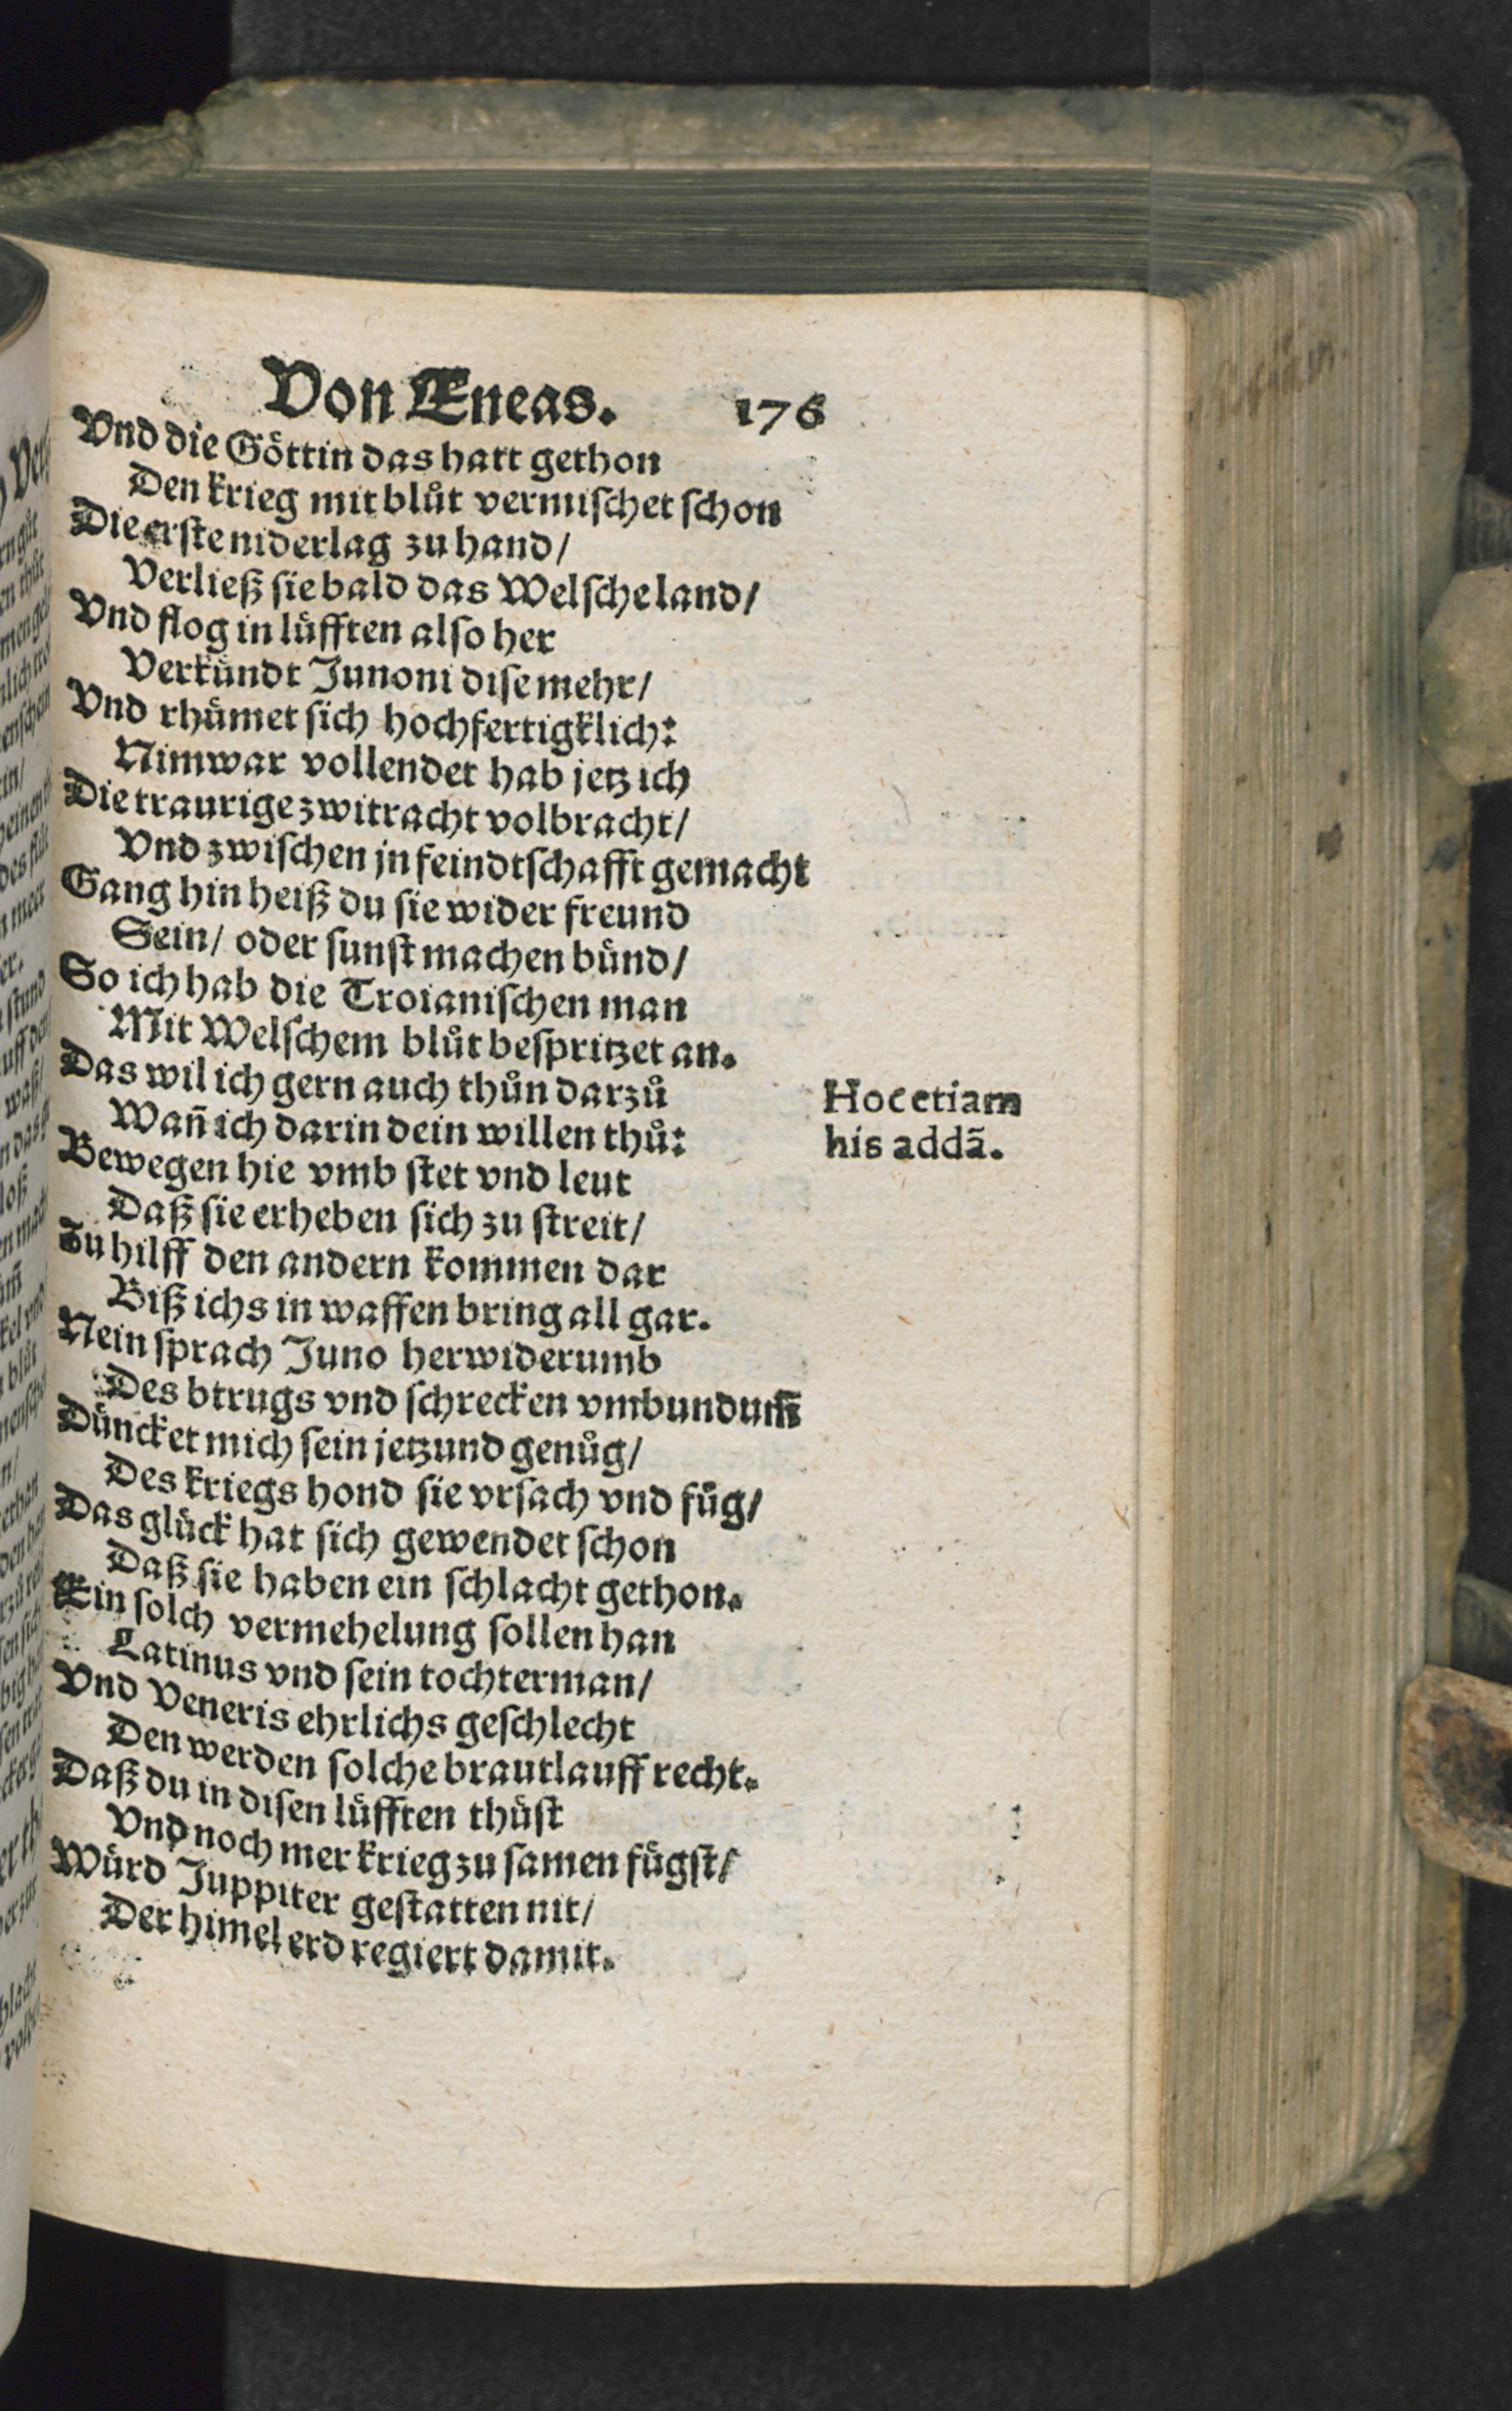 Von Æneas. 176
Vnd die Göttin das hatt gethon
Den krieg mit blůt vermischet schon
Die erste niderlag zu hand/
Verließ sie bald das Welsche land/
Vnd flog in lüfften also her
Verkündt Junoni dise mehr/
Vnd rhümet sich hochfertigklich:
Nimwar vollendet hab jetz ich
Die traurige zwitracht volbracht/
Vnd zwischen jn feindtschafft gemacht
Gang hin heiß du sie wider freund
Sein/ oder sunst machen bünd/
So ich hab die Troianischen man
Mit Welschem blůt bespritzet an.
Das wil ich gern auch thůn darzů
Wañ ich darin dein willen thů:
Bewegen hie vmb stet vnd leut
Daß sie erheben sich zu streit/
Zu hilff den andern kommen dar
Biß ichs in waffen bring all gar.
Nein sprach Juno herwiderumb
Des btrugs vnd schrecken vmbundum̃
Düncket mich sein jetzund genůg/
Des kriegs hond sie vrsach vnd fůg/
Das glück hat sich gewendet schon
Daß sie haben ein schlacht gethon.
Ein solch vermehelung sollen han
Latinus vnd sein tochterman/
Vnd Veneris ehrlichs geschlecht
Den werden solche brautlauff recht.
Daß du in disen lüfften thůst
Vnd noch mer krieg zu samen fůgst/
Würd Juppiter gestatten nit/
Der himel erd regiert damit.
Hoc etiam
his addã.